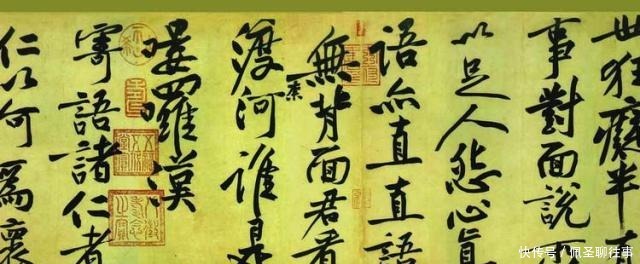 世狂癡半
事對面說
以足人怨心真
語亦直直語
無背面君看
渡柰河誰是
嘍羅漢
寄語諸仁者
仁以何爲懷
快传号/佩圣聊往事